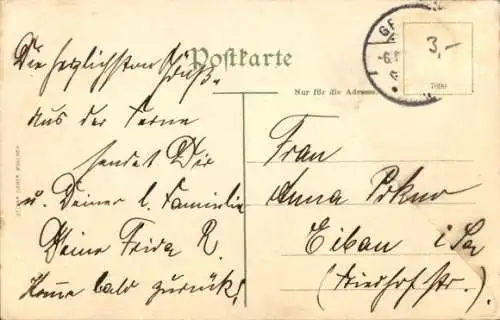 Postkarte
Die herzlichsten Grüße
aus der Ferne
sendet Dir
u. Deiner l. Familie
Deine Frida R.
Komme bald zurück!
3,-
7699
Nur für die Adresse
Frau
Anna
Eibau i. Sa
(Friedhofstr.)